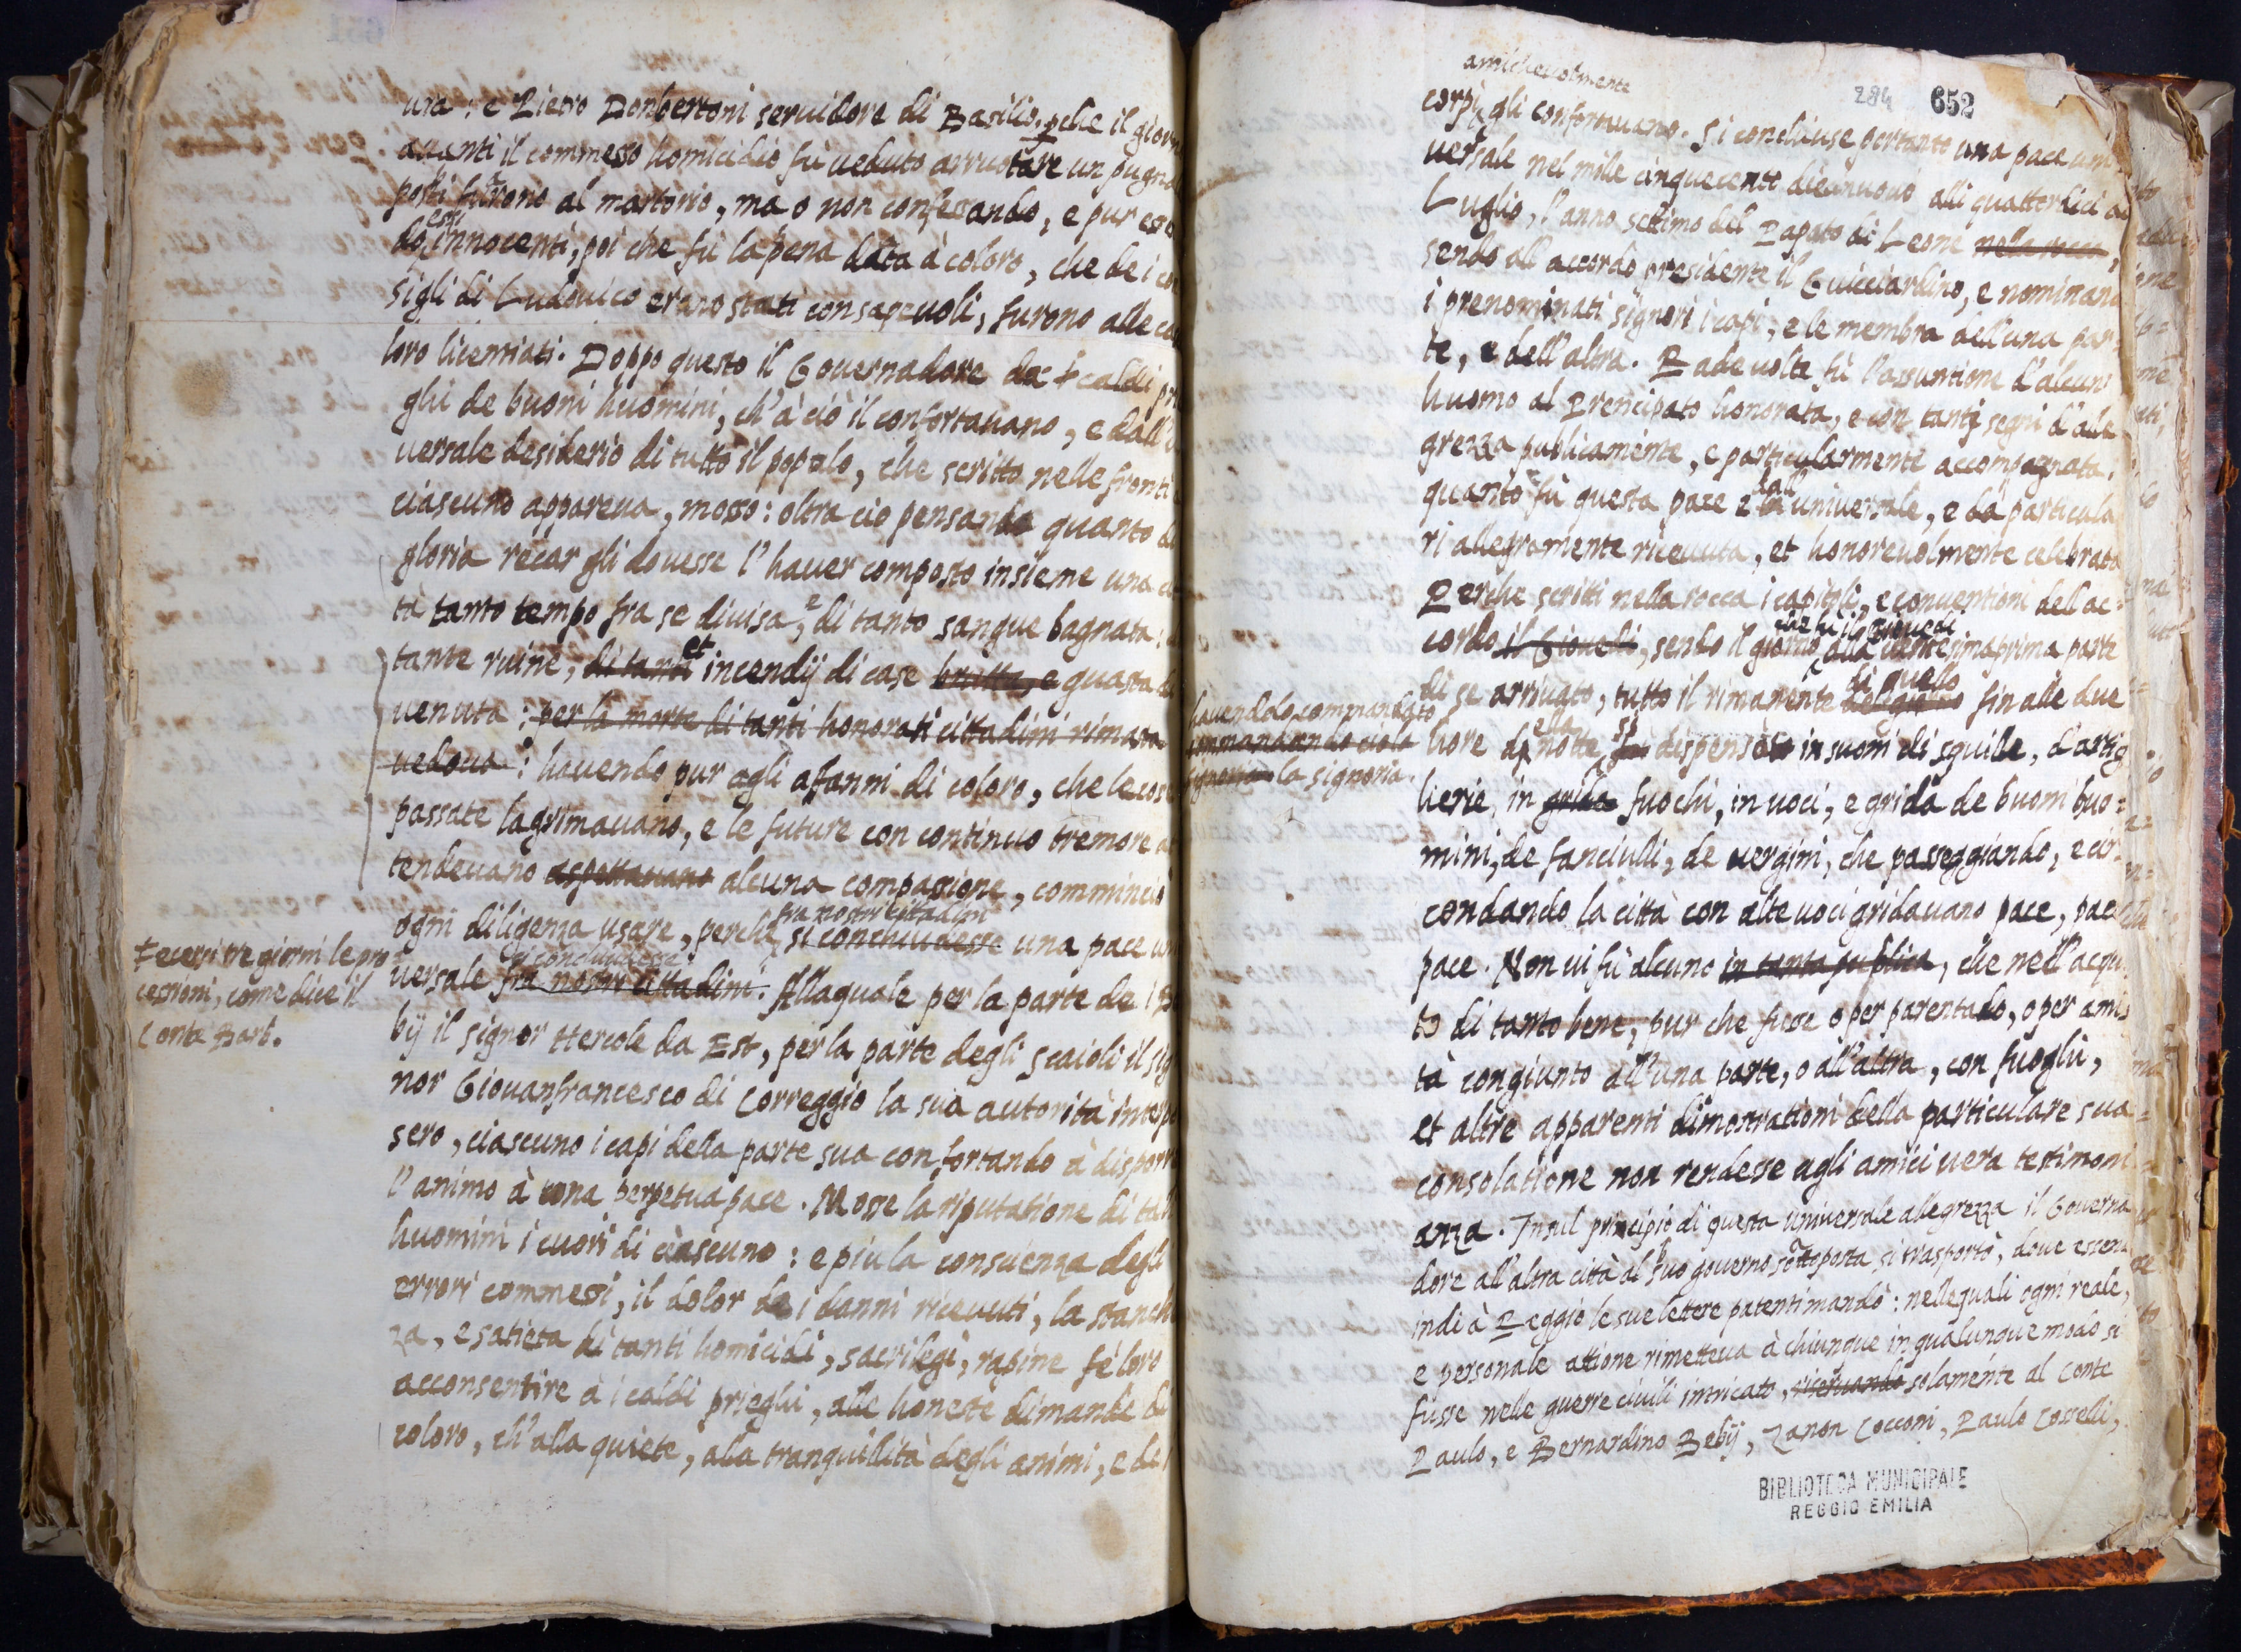 ura: e Pietro Donbertoni seruidore di Basilio. pche il giorn
auanti il commesso homicidio fù ueduto arruotare un pugna
posti furono al martorio, ma o non confessando, e pur essen
do essi innocenti, poi che fù la pena data à coloro, che de i con
sigli di Ludouico erano stati consapeuoli, furono alle case
loro licentiati. Doppo questo il Gouernadore da i caldi prie
ghi de buoni huomini, ch'à ciò il confortauano, e dall'
uersale desiderio di tutto il popolo, che scritto nelle fronti
ciascuno appareua, mosso: oltra cio pensando quanto di
gloria recar gli douesse l'hauer composto insieme una cit
tà tanto tempo fra se diuisa, e di tanto sangue bagnata:
tante ruine, di tanti et incendij di case brutta, e guasta
uenuta: per la morte di tanti honorati cittadini rimasta
uedoua: hauendo pur agli affanni di coloro, che le cose
passate lagrimauano, e le future con continuo tremore at
tendeuano aspettauano alcuna compassione, comminciò
ogni diligenza usare, perche fra nostri cittadini si conchiudesse una pace uni
uersale si conchiudesse fra nostri cittadini. Alla quale per la parte de i Be
bij il signor Hercole da Est, per la parte degli Scaioli il sig
nor Giouanfrancesco di Correggio la sua autorità interpo
sero, ciascuno i capi della parte sua confortando à disporre
l'animo à una perpetua pace. Mosse la riputatione di tali
huomini i cuori di ciascuno: e piu la conscienza degli
errori commessi, il dolor de i danni riceuuti, la stanch
za, e satieta di tanti homicidi, sacrilegi, rapine fè loro
acconsentire à i caldi prieghi, alle honeste dimande di
coloro, ch'alla quiete, alla tranquillità degli animi, e de i
Fecersi tre giorni le pro
cessioni, come dice il
Conte Barb.
284 652
amicheuolmente
corpi gli confortauano. Si conchiuse pertanto una pace uni
uersale nel mille cinquecento diecinuoue alli quattordici di
Luglio, l'anno settimo del Papato di Leone nella rocca,
sendo all'accordo presidente il Guicciardino, e nominand
i prenominati signori i capi, e le membra dell'una par
te, e dell'altra. Rade uolte fù l'assuntione d'alcun
huomo al Prencipato honorata, e con tanti segni d'alle
grezza publicamente, e particularmente accompagnata,
quanto fù questa pace e dall' universale, e da particula
ri allegramente riceuuta, et honoreuolmente celebrata
Perche scritti nella rocca i capitoli, e conuentioni del ac=
cordo il Giouedi, sendo il giorno che fu il Giouedi alla uentesimaprima parte
di se arriuato, tutto il rimanente di quello del giorno fin alle due
hore della notte si fu dispensò in suoni di squille, d'artig
lierie, in grida fuochi, in uoci, e grida de buoni huo=
mini, de fanciulli, de uergini, che passeggiando, e cir=
condando la città con alte uoci gridauano pace, pace
pace. Non ui fù alcuno in tanta publica, che nell'acqui
to di tanto bene, pur che fusse o per parentado, o per amis
tà congiunto all'una parte, o all'altra, con fuoghi,
et altre apparenti dimostrationi della particulare sua
consolatione non rendesse agli amici uera testimoni
anza. In sul principio di questa universale allegrezza il Gouerna
dore all'altra città al suo gouerno sottoposta si trasportò, doue essen
indi à Reggio le sue lettere patenti mandò: nelle quali ogni reale,
e personale attione rimetteua à chiunque in qualunque modo si
fusse nelle guerre ciuili intricato, riseruando solamente al Conte
Paulo, e Bernardino Bebij, Zanon Cocconi, Paulo Cosselli,
hauendolo commandato
commandando ciò la
signoria la signoria.
BIBLIOTECA MUNICIPALE
REGGIO EMILIA